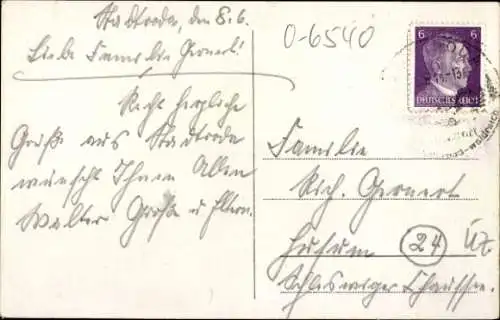 Stadtroda, den 8.6.
0-6540
Liebe Familie Gernert!
Recht herzliche
Grüße aus Stadtroda
wünscht Ihnen Allen
Walter Große u. Eltern.
6 6
DEUTSCHES REICH
Familie
Rich. Gernert
Husum 24
Schleswiger Chaussee.